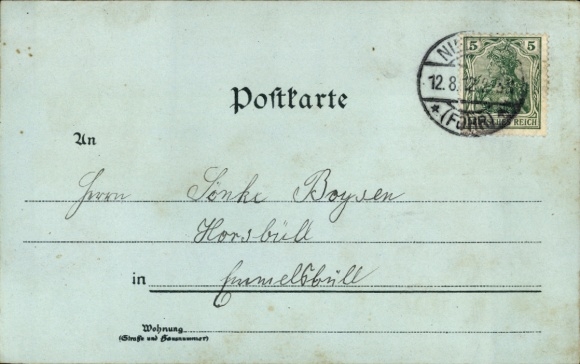 5 5
12.8.
(FÖHR)
REICH
Postkarte
An
Herrn Sönke Boysen
Horsbüll
in Emmelsbüll
Wohnung
(Straße und Hausnummer)